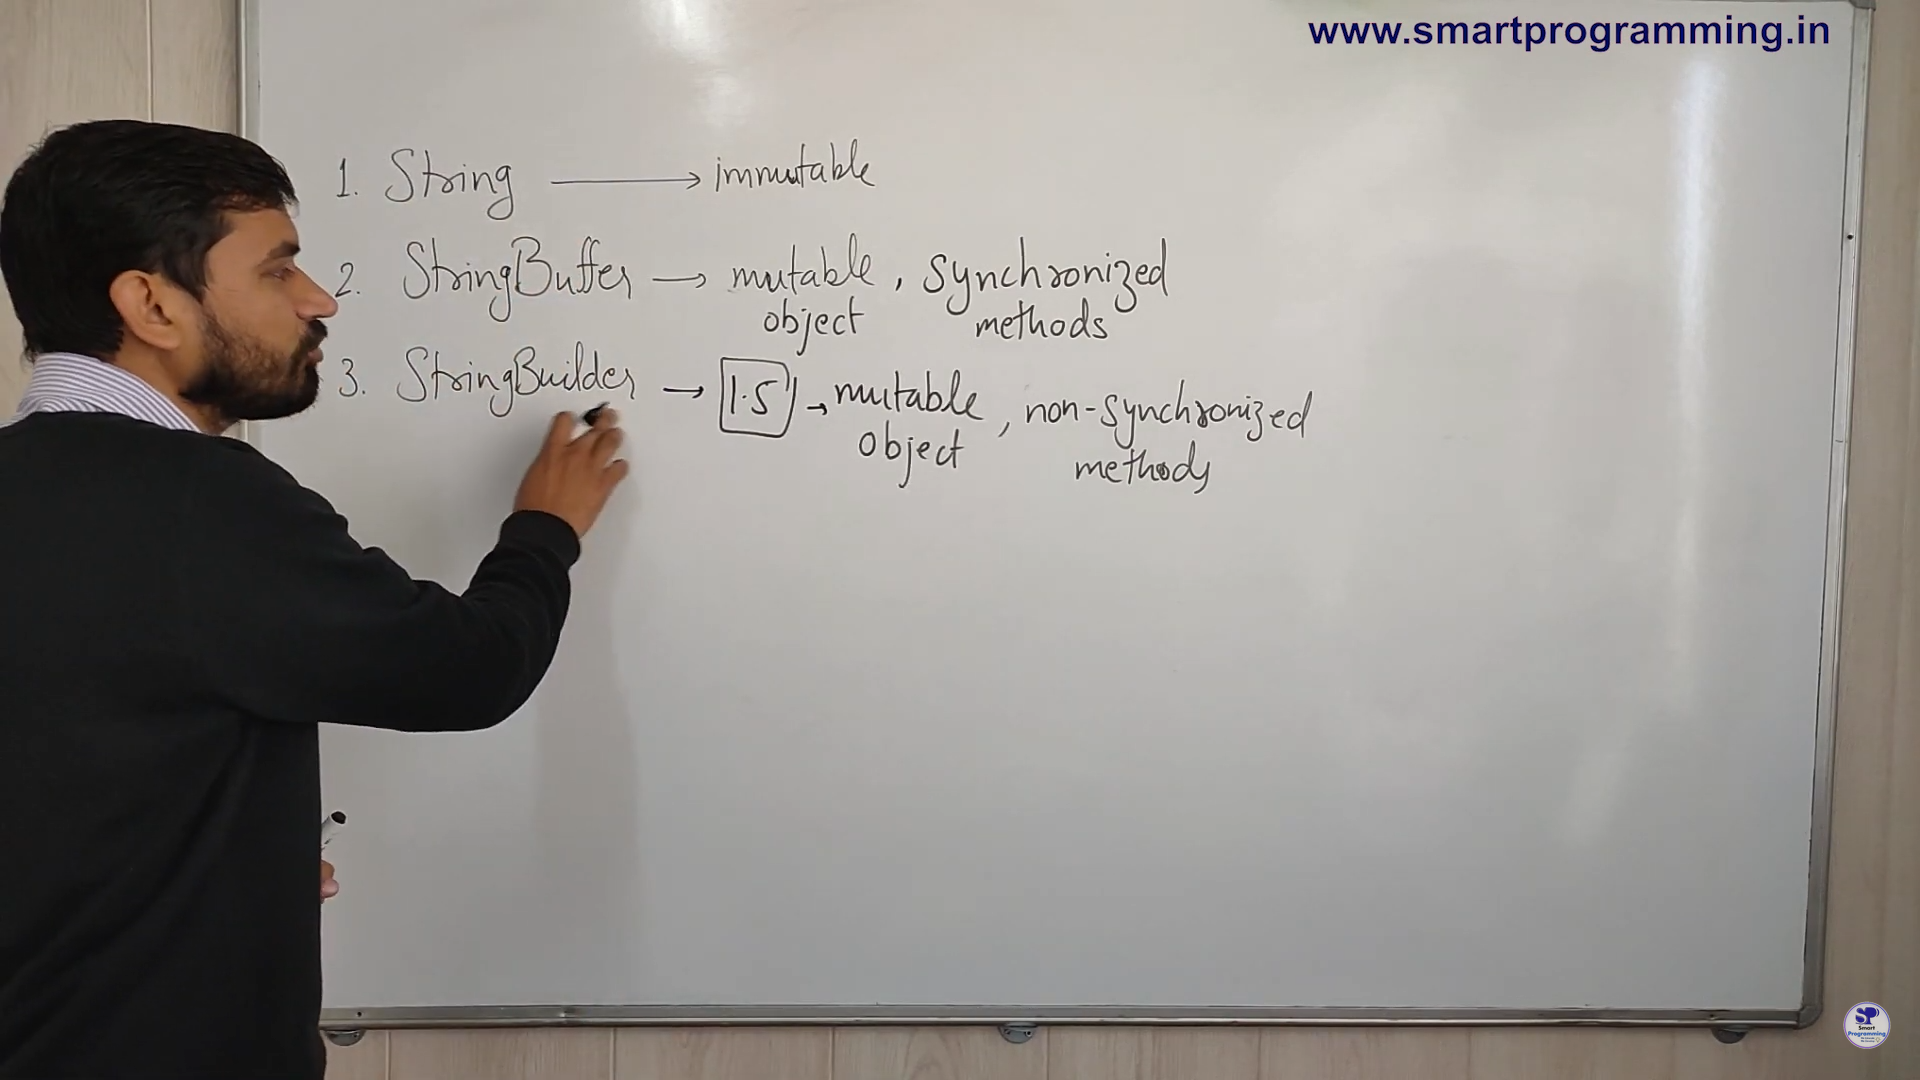 www.smartprogramming.in
1. String → immutable
2. StringBuffer → mutable object, synchronized methods
3. StringBuilder → 1.5 → mutable object, non-synchronized methods
SP
Smart
Programming